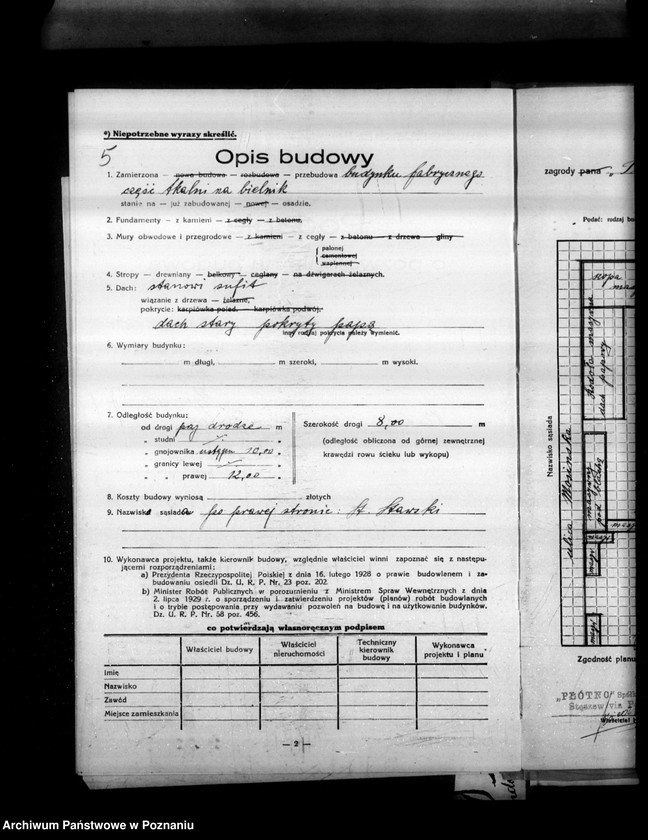 *) Niepotrzebne wyrazy skreślić.
5
Opis budowy
1. Zamierzona — nowa budowa — rozbudowa — przebudowa budynku fabrycznego
część tkalni na bielnik
stanie na — już zabudowanej — nowej — osadzie.
2. Fundamenty — z kamieni — z cegły — z betonu.
3. Mury obwodowe i przegrodowe — z kamieni — z cegły — z betonu — z drzewa — gliny
palonej
cementowej
wapiennej
4. Stropy — drewniany — belkowy — ceglany — na dźwigarach żelaznych.
5. Dach: stanowi sufit
wiązanie z drzewa — żelazne,
pokrycie: karpiówka pojed. — karpiówka podwój.
dach stary pokryty papą
inny rodzaj pokrycia należy wymienić.
6. Wymiary budynku:
m długi, m szeroki, m wysoki.
7. Odległość budynku:
od drogi przy drodze m
„ studni
„ gnojownika ustępu 10,00
„ granicy lewej
„ „ prawej 12,00
Szerokość drogi 8,00 m
(odległość obliczona od górnej zewnętrznej
krawędzi rowu ścieku lub wykopu)
8. Koszty budowy wyniosą złotych
9. Nazwisko sąsiada po prawej stronie: St. Stawski
10. Wykonawca projektu, także kierownik budowy, względnie właściciel winni zapoznać się z następu-
jącemi rozporządzeniami:
a) Prezydenta Rzeczypospolitej Polskiej z dnia 16. lutego 1928 o prawie budowlanem i za-
budowaniu osiedli Dz. U. R. P. Nr. 23 poz. 202.
b) Ministrer Robót Publicznych w porozumieniu z Ministrem Spraw Wewnętrznych z dnia
2. lipca 1929 r. o sporządzeniu i zatwierdzeniu projektów (planów) robót budowlanych
i o trybie postępowania przy wydawaniu pozwoleń na budowę i na użytkowanie budynków.
Dz. U. R. P. Nr. 58 poz. 456.
co potwierdzają własnoręcznym podpisem
Właściciel budowy
Właściciel nieruchomości
Techniczny kierownik budowy
Wykonawca projektu i planu
Imię
Nazwisko
Zawód
Miejsce zamieszkania
— 2 —
zagrody pana
Podać: rodzaj bu
Nazwisko sąsiada
ulica Mosińska
szopa
stodoła masywna
dach papowy
masywny
Zgodność planu
„PŁÓTNO" Spółk
Stęszew via P
Właściciel
Archiwum Państwowe w Poznaniu